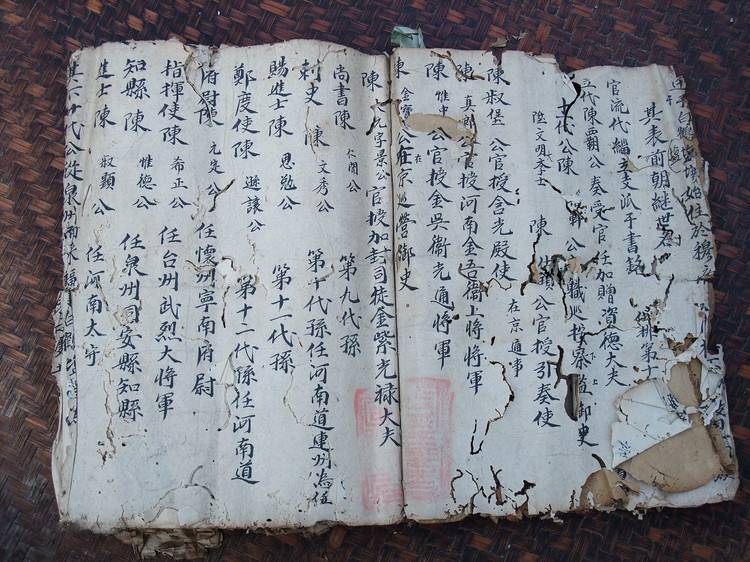 其表前朝繼世名
官流代繼支派于書銘
五代陳霸公奏受官任加贈資德大夫
代公陳 公職巡按察監御史
陸文明李士 陳 公官授引奏使
在京通事
陳叔堡公官授舍光殿使
陳真郎公官授河南金吾衛上將將軍
陳惟中公官授金吳衛光通將軍
陳金寶公在京巡營御史
陳 字景公官授加封司徒金紫光祿大夫
尚書陳仁閏公 第九代孫
刺史陳文秀公 第十代孫任河南道連州為任
賜進士陳恩勉公 第十一代孫
鄭度使陳遜讓公 第十二代孫任河南道
府尉陳元定公 任懷州寧南府尉
指揮使陳希正公 任台州武烈大將軍
知縣陳惟德公 任泉州同安縣知縣
進士陳叔顯公 任河南太守
進二十代公從泉州南來